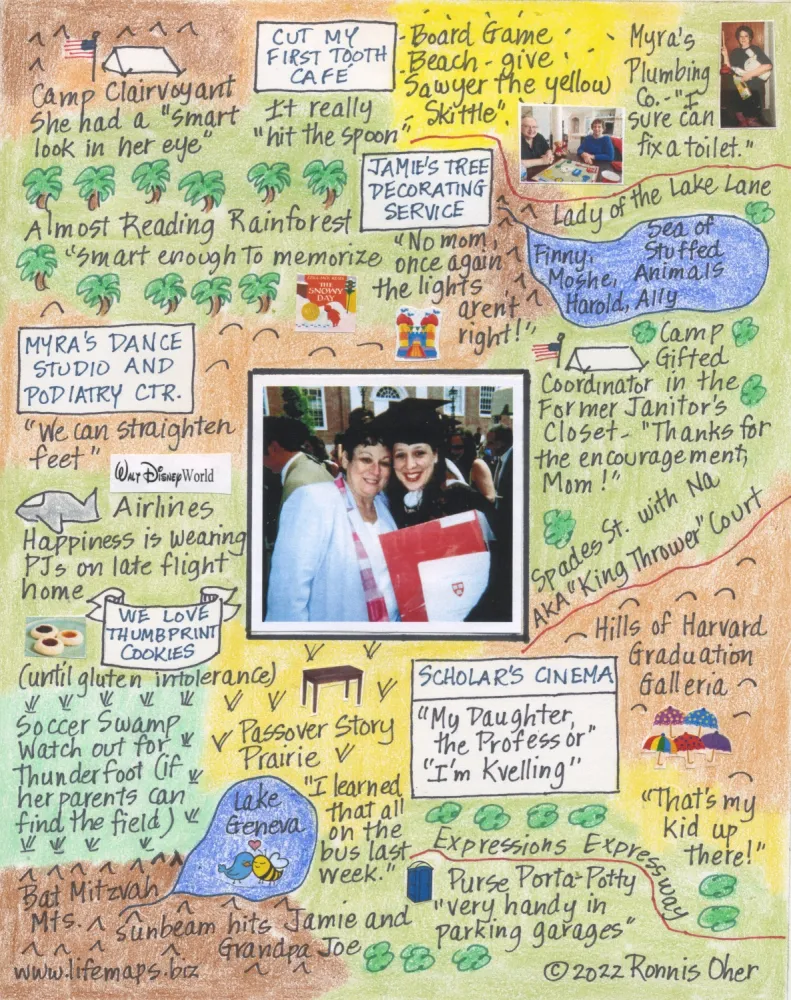 Camp Clairvoyant
She had a "smart
look in her eye"
CUT MY
FIRST TOOTH
CAFÉ
It really
"hit the spoon"
Board Game
Beach - give
Sawyer the yellow
Skittle".
Myra's
Plumbing
Co. - "I
sure can
fix a toilet."
JAMIE'S TREE
DECORATING
SERVICE
"No mom,
once again
the lights
aren't
right!"
Lady of the Lake Lane
Sea of
Stuffed
Animals
Finny,
Moshe,
Harold, Ally
Almost Reading Rainforest
"Smart enough to memorize
THE
SNOWY
DAY
MYRA'S DANCE
STUDIO AND
PODIATRY CTR.
"We can straighten
feet"
Camp
Gifted
Coordinator in the
Former Janitor's
Closet - "Thanks for
the encouragement,
Mom!"
WALT DISNEY World
Airlines
Happiness is wearing
PJs on late flight
home
Spades St. with Na
AKA "King Thrower" Court
WE LOVE
THUMBPRINT
COOKIES
(until gluten intolerance)
Hills of Harvard
Graduation
Galleria
SCHOLAR'S CINEMA
"My Daughter,
the Professor"
"I'm Kvelling"
Soccer Swamp
Watch out for
Thunderfoot (if
her parents can
find the field)
Passover Story
Prairie
"I learned
that all
on the
bus last
week."
Lake
Geneva
"That's my
kid up
there!"
Expressions Expressway
Bat Mitzvah
Mts.
Sunbeam hits Jamie and
Grandpa Joe
Purse Porta-Potty
"very handy in
parking garages"
www.lifemaps.biz
© 2022 Ronnis Oher